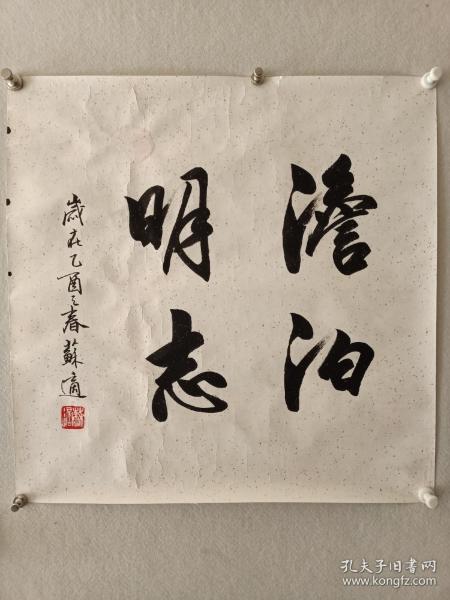 澹泊
明志
歲在乙酉之春蘇適
孔夫子旧书网
www.kongfz.com